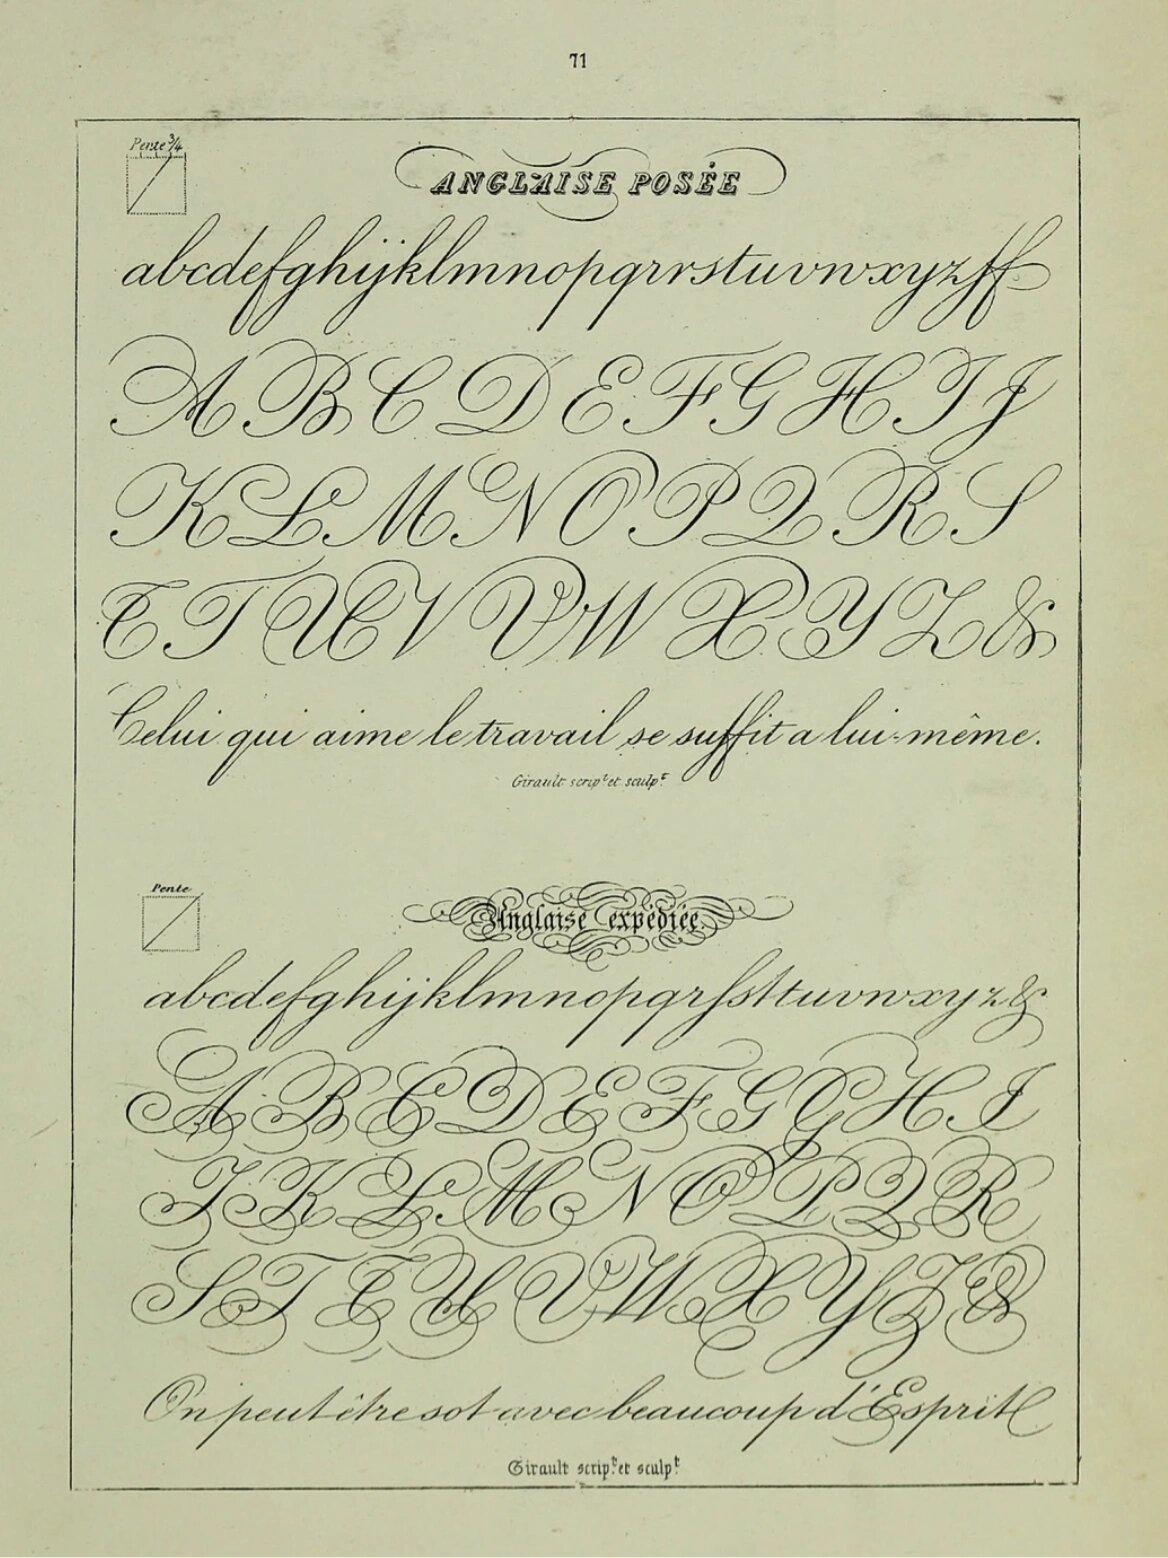 71
Pente 3/4
ANGLAISE POSÉE
abcdefghijklmnopqrrstuvwxyzff
ABCDEFGHIJ
KLMNOPQRS
TTUVVWXYZ&
Celui qui aime le travail se suffit a lui-même.
Girault scrip.t et sculp.t
Pente
Anglaise expédiée.
abcdefghijklmnopqrſsttuvwxyz&
ABCDEFGGHI
JKLMNOPQR
STTUVWXYZ&
On peut être sot avec beaucoup d'Esprit
Girault scrip.t et sculp.t